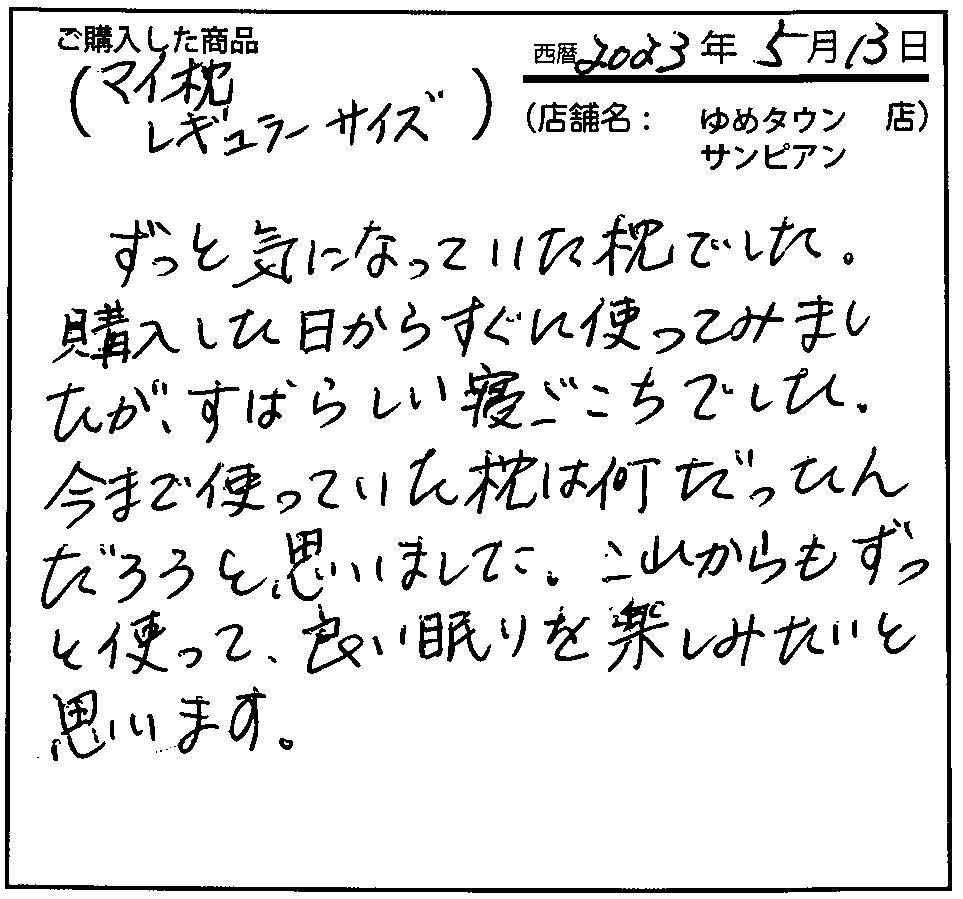 ご購入した商品
(マイ枕
レギュラーサイズ)
西暦2023年5月13日
(店舗名: ゆめタウン 店)
サンピアン
ずっと気になっていた枕でした。
購入した日からすぐに使ってみまし
たが、すばらしい寝ごこちでした。
今まで使っていた枕は何だったん
だろうと思いました。これからもずっ
と使って、良い眠りを楽しみたいと
思います。